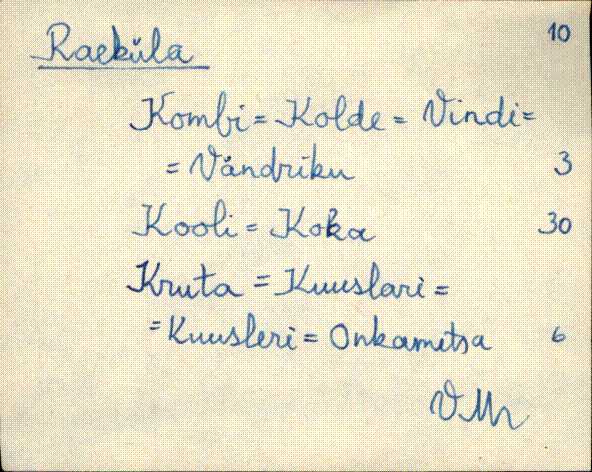 Raeküla 10
Kombi = Kolde = Vindi =
= Vändriku 3
Kooli = Koka 30
Kruta = Kuuslari =
= Kuusleri = Onkametsa 6
VMr